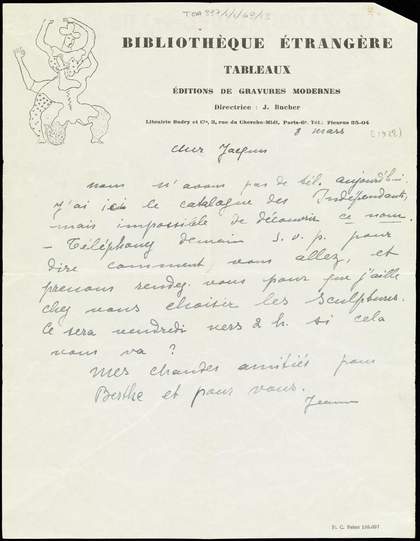 TGA 897/1/1/60/13
BIBLIOTHÈQUE ÉTRANGÈRE
TABLEAUX
ÉDITIONS DE GRAVURES MODERNES
Directrice : J. Bucher
Librairie Budry et Cie, 3, rue du Cherche-Midi, Paris-6e. Tél.: Fleurus 85-04
8 mars
[1928]
Cher Jacques
nous n'avons pas de tél. aujourd'hui
J'ai ici le catalogue des Indépendants,
mais impossible de découvrir ce nom.
- Téléphonez demain s.v.p. pour
dire comment vous allez, et
prenons rendez-vous pour que j'aille
chez vous choisir les sculptures.
Ce sera vendredi vers 2 h. si cela
vous va ?
Mes chaudes amitiés pour
Berthe et pour vous.
Jeanne